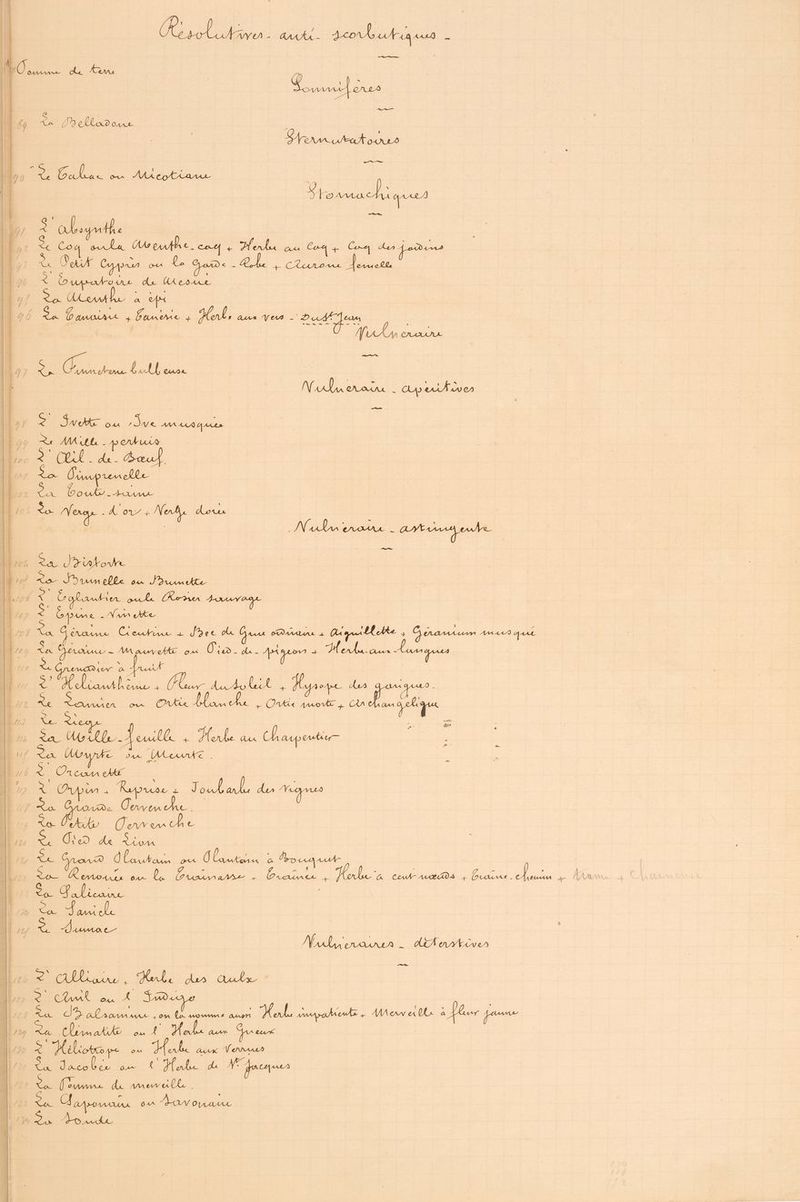 Résolutives - anti-scorbutiques
Pomme de terre
Somnifères
89 La Belladone
Sternutatoires
90 Le Tabac ou Nicotiane
Stomachiques
91 L'Absynthe
Le Coq ou la Menthe-coq + Herbe au Coq + Coq des jardins
Le Petit Cyprès ou la Garde-Robe + Aurone femelle
L'Eupatoire de Mesue
La Menthe à épi
La Tanaisie + Tanésie + Herbe aux vers
Vulnéraire
97 La Fumeterre bulbeuse
Vulnéraire - apéritives
L'Ivette ou Ive musquée
Le Mille-pertuis
100 L'Œil-de-Bœuf
La Pimprenelle
La Toute-saine
La Verge-d'or + Verge dorée
Vulnéraire - astringente
La Bistorte
La Brunelle ou Brunette
L'Eglantier ou le Rosier sauvage
L'Epine-Vinette
La Géraine Cicutine + Bec de Grue ordinaire + Aiguillette + Géranium musqué
La Géraine - ou Pied-de-pigeon + Herbe aux
Le Grenadier à fruit
L'Helianthème + Fleur du Soleil + Hysope des garigues
Le Lamier ou Ortie blanche + Ortie morte + Archangélique
Le Liège
La Mille-feuille + Herbe au Charpentier
La Myrte ou Meurte
L'Orcanette
L'Orpin + Reprise + Joubarbe des vignes
La Grande Pervenche
La Petite Pervenche
Le Pied de Lion
Le Grand Plantain ou Plantain à Bouquet
La Renouée ou la + Herbe à cent nœuds +
La Salicaire
La Sanicle
Le Sumac
Vulnéraires - détersives
L'Alliaire, Herbe des Aulx
L'Anil ou l'Indigo
La Balsamine, on la nomme aussi Herbe impatiente + Merveille à fleur jaune
La Clématite ou l'Herbe aux Gueux
L'Héliotrope ou Herbe aux Verrues
La Jacobée ou l'Herbe de St Jacques
La Pomme de merveille
La Saponaire ou Savonaire
La Soude